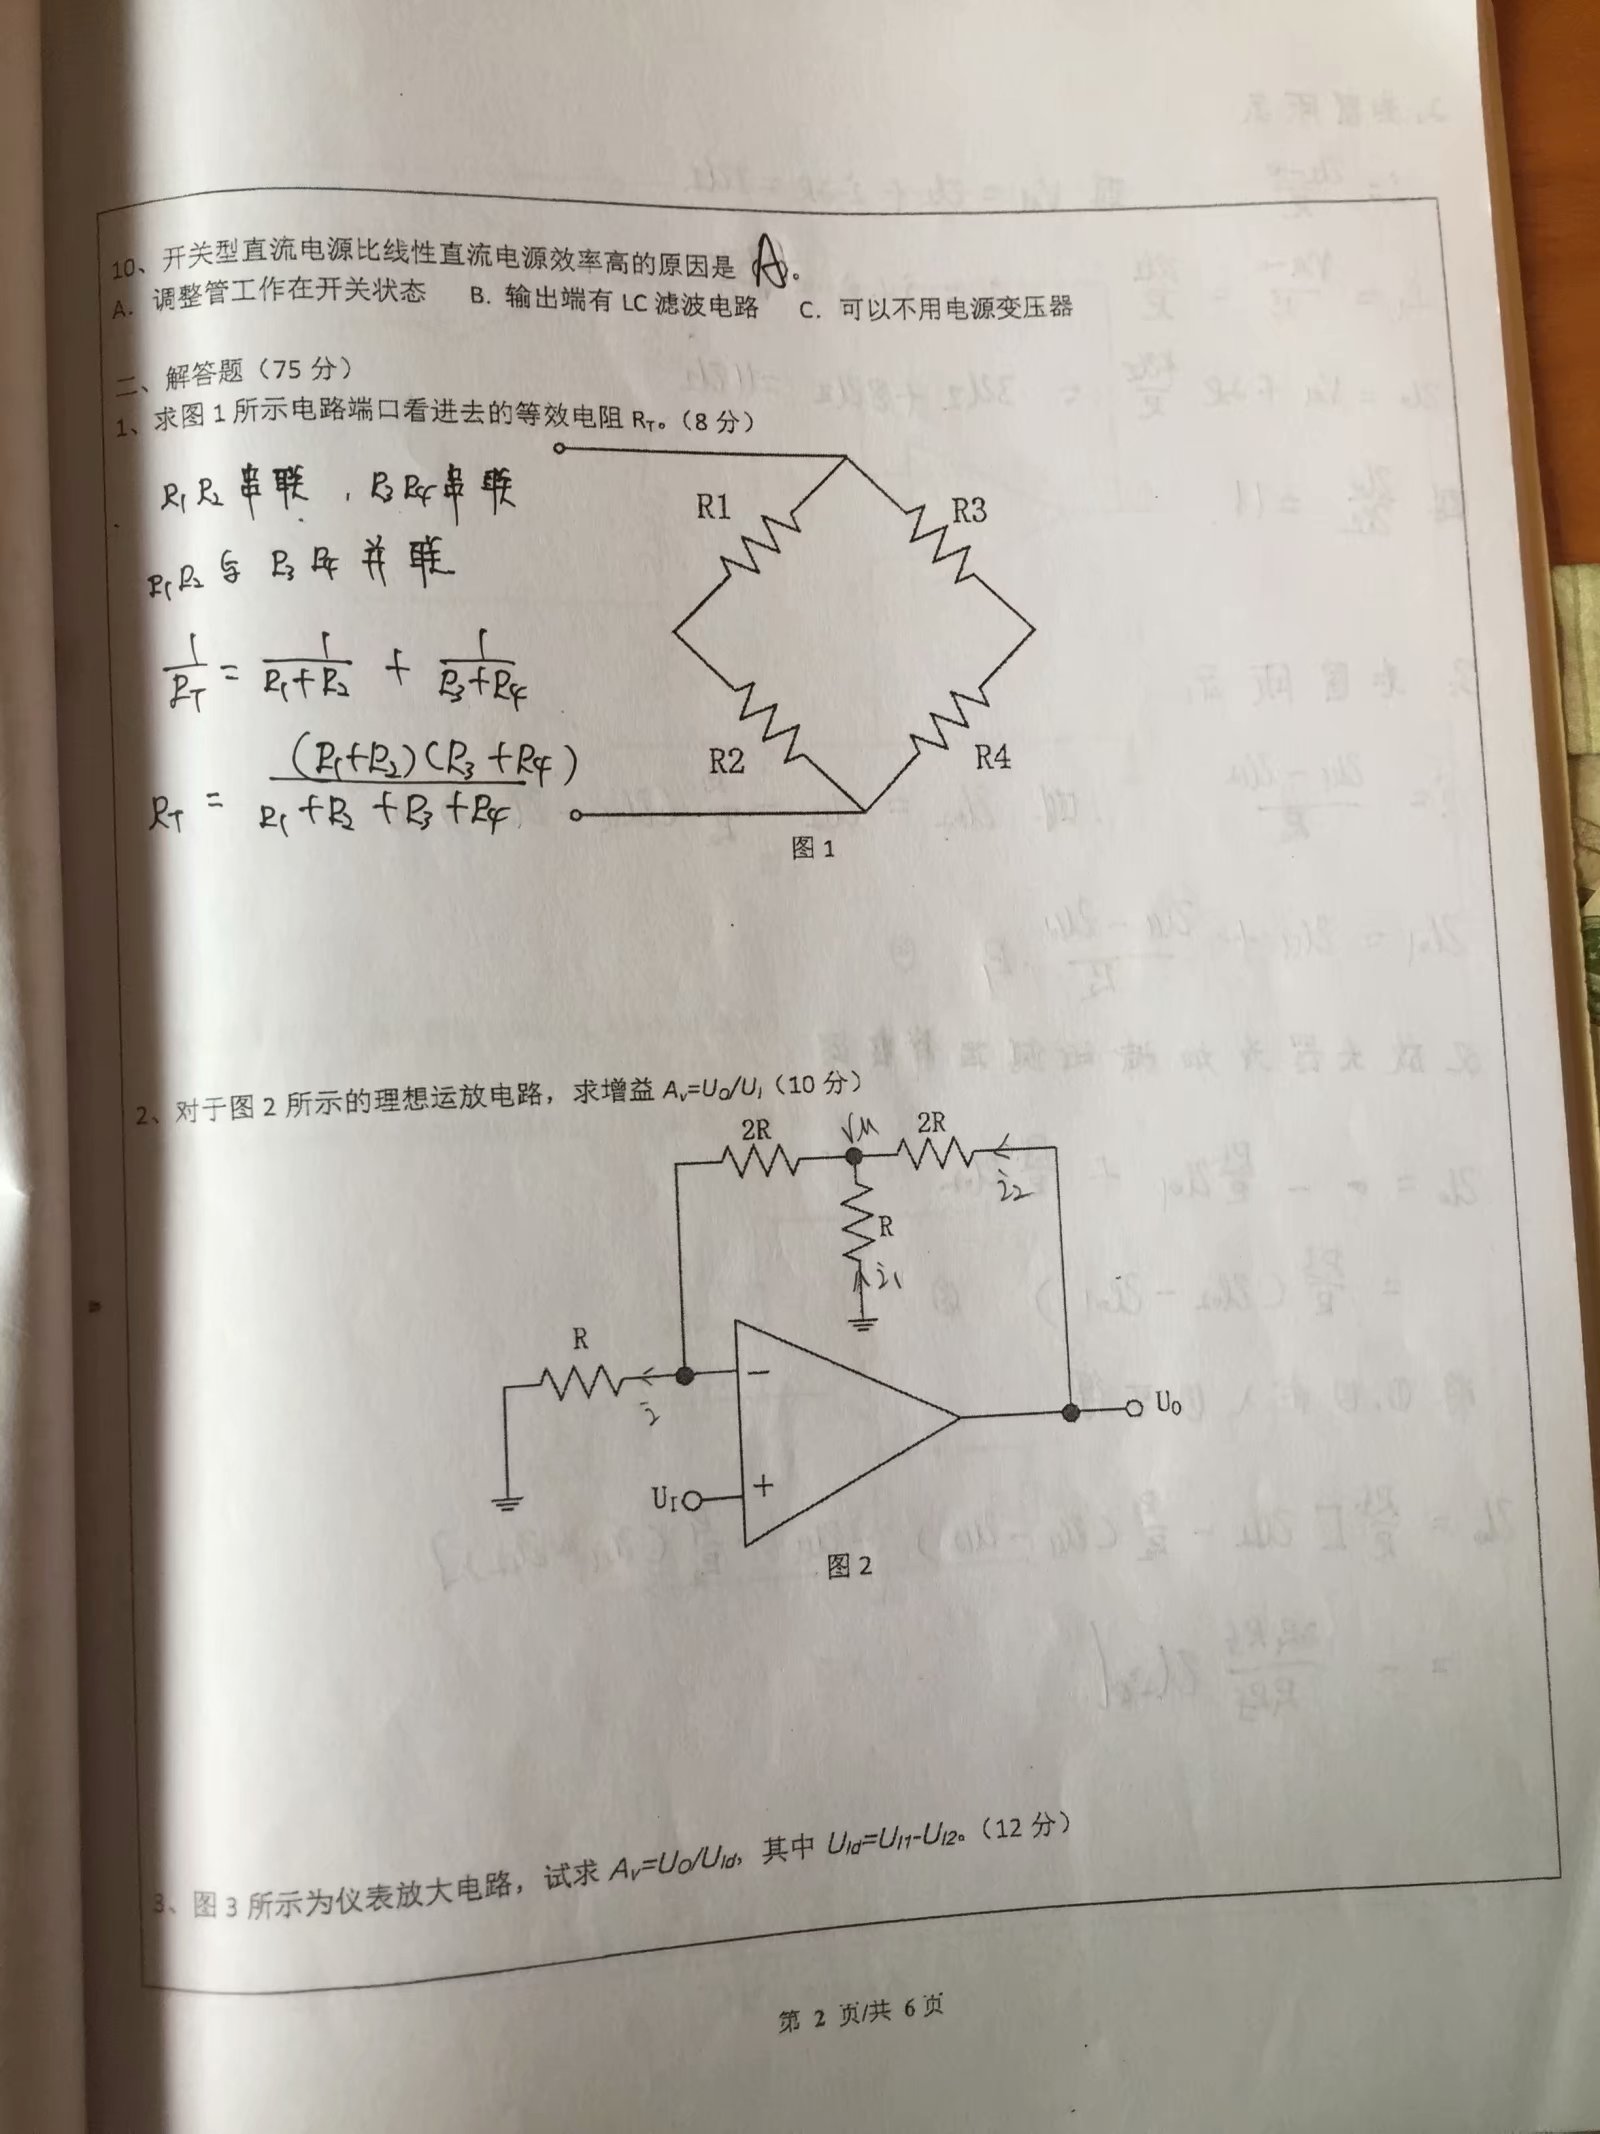 10、开关型直流电源比线性直流电源效率高的原因是 A 。
A. 调整管工作在开关状态 B. 输出端有 LC 滤波电路 C. 可以不用电源变压器
二、解答题（75 分）
1、求图 1 所示电路端口看进去的等效电阻 RT。（8 分）
R1 R2 串联，R3 R4 串联
R1 R2 与 R3 R4 并联
1/RT = 1/(R1+R2) + 1/(R3+R4)
RT = (R1+R2)(R3+R4)/(R1+R2+R3+R4)
R1
R3
R2
R4
图 1
2、对于图 2 所示的理想运放电路，求增益 Av=UO/UI（10 分）
2R
VM
2R
i2
R
i1
R
i
−
+
UI
UO
图 2
3、图 3 所示为仪表放大电路，试求 Av=UO/UId，其中 UId=UI1-UI2。（12 分）
第 2 页/共 6 页